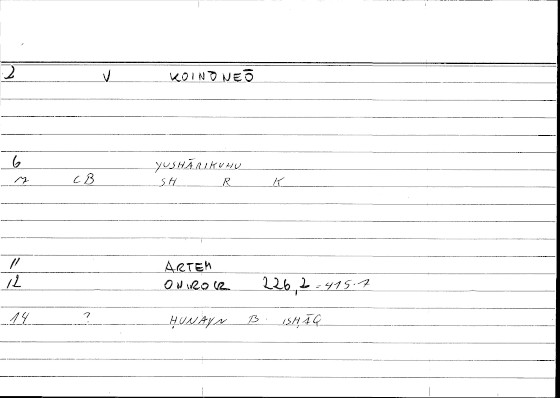 2 V KOINŌNEŌ
6 YUSHĀRIKUHU
7 CB SH R K
11 ARTEM
12 ONIROCR 226,2 - 415.7
14 ? ḤUNAYN B. ISḤĀQ